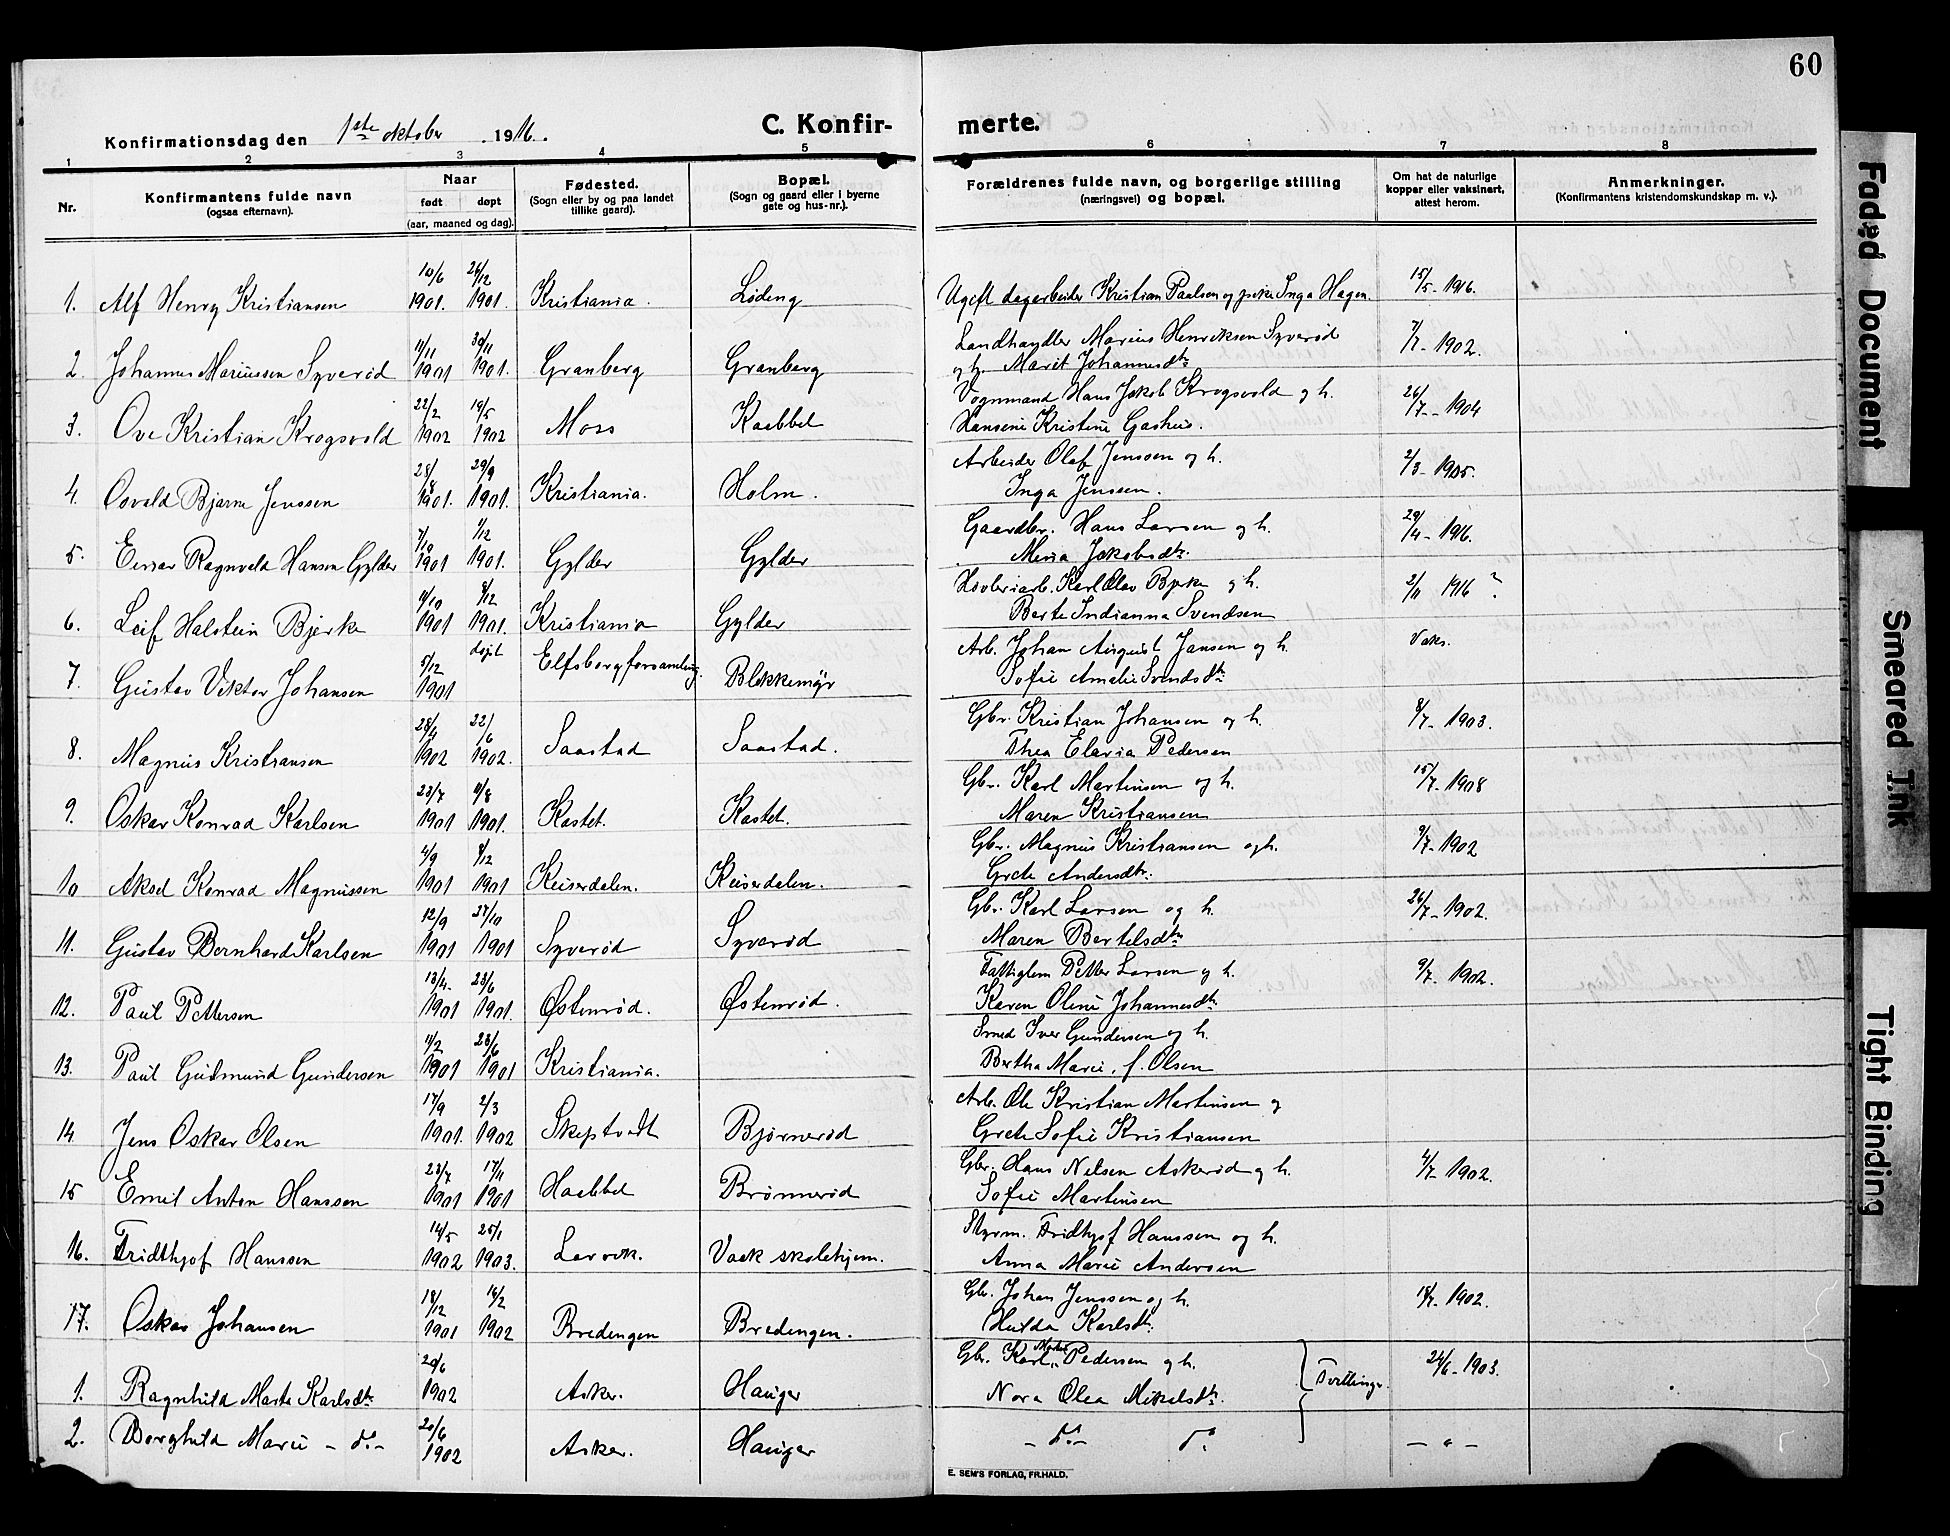 60
Konfirmationsdag den 1ste oktober 1916.
C. Konfirmerte.
1 2 3 4 5 6 7 8
Nr.
Konfirmantens fulde navn
(ogsaa efternavn).
Naar
født døpt
(aar, maaned og dag).
Fødested.
(Sogn eller by og paa landet
tillike gaard).
Bopæl.
(Sogn og gaard eller i byerne
gate og hus-nr.).
Forældrenes fulde navn, og borgerlige stilling
(næringsvei) og bopæl.
Om hat de naturlige
kopper eller vaksinert,
attest herom.
Anmerkninger.
(Konfirmantens kristendomskundskap m. v.).
1. Alf Henry Kristiansen 10/6 1901. 26/12 1901. Kristiania. Løding Ugift dagarbeider Kristian Paulsen og pike Inga Hagen. 15/5-1916.
2. Johannes Mariussen Syverød 11/11 1901 30/11 1901. Granberg Granberg Landhandler Marius Henriksen Syverød
og h. Marit Johannesdtr 7/7-1902.
3. Ove Kristian Krogsvold 22/2 1902 19/5 1902 Moss Kaabbel Vognmand Hans Jakob Krogsvold og h.
Hansine Kristine Gashus. 26/7-1904
4. Osvald Bjarne Jenssen 28/8 1901. 29/9 1901. Kristiania. Holm. Arbeider Olaf Jenssen og h.
Inga Jenssen. 2/3-1905.
5. Einar Ragnvald Hansen Gylder 7/10 1901 1/12 1901. Gylder Gylder Gaardbr. Hans Larsen og h.
Mina Jakobsdtr. 29/4-1916.
6. Leif Halstein Bjerke 11/10 1901 8/12 1901. Kristiania Gylder Høvleriarb. Karl Olav Bjerke og h.
Berte Indianna Svendsen 2/11 1916 ?
7. Gustav Viktor Johansen 5/12 1901 døpt Elfsborg forsamling. Blekkemyr Arb. Johan August Jansen og h.
Sofie Amalie Svendsdtr. Vaks.
8. Magnus Kristiansen 28/4 1902 22/6 1902. Saastad Saastad. Gbr. Kristian Johansen og h.
Thea Elavia Pedersen 8/7-1903.
9. Oskar Konrad Karlsen 23/7 1901 11/8 1901. Kastet. Kastet. Gbr. Karl Martinsen og h.
Maren Kristiansen 15/7-1908
10 Aksel Konrad Magnussen 4/9 1901 8/12 1901 Keiserdalen. Keiserdalen. Gbr. Magnus Kristiansen og h.
Grete Andersdtr. 9/7-1902
11. Gustav Bernhard Karlsen 12/9 1901 27/10 1901 Syverød Syverød Gbr. Karl Larsen og h.
Maren Bertelsdtr 26/7-1902.
12. Paul Pettersen 13/4- 1901 23/6 1901. Østenrød. Østenrød. Fattiglem Petter Larsen og h.
Karen Oline Johannesdtr. 9/7-1902.
13. Paul Gudmund Gundersen 11/2 1901 23/6 1901 Kristiania. Smed Iver Gundersen og h.
Bertha Marie, f. Olsen
14 Jens Oskar Olsen 17/9 1901. 2/3 1902 Skeptvedt Bjørnerød Arb. Ole Kristian Martinsen og
Grete Sofie Kristiansen
15 Emil Anton Hanssen 23/7 1901 17/11 1901 Haabbel Brønnerød Gbr. Hans Nelsen Askerød og h.
Sofie Martinsen 4/7-1902.
16. Fridthjof Hanssen 14/5 1902 25/1 1903. Larvik. Vaek skolehjem. Styrm. Fridthjof Hanssen og h.
Anna Marie Andersen
17. Oskar Johansen 18/12 1901 16/2 1902 Bredengen Bredengen. Gbr. Johan Jenssen og h.
Hulda Karlsdtr. 18/7-1902.
1. Ragnhild Marta Karlsdtr 20/6 1902 Asker. Hauger Gbr. Karl Pedersen og h.
Nora Olea Mikelsdtr. Tvillinger 24/6-1903.
2. Borghild Marie - do.- 20/6 1902 Asker. Hauger - do.- do - " -
E. SEM'S FORLAG, FR.HALD.
Faded Document
Smeared Ink
Tight Binding